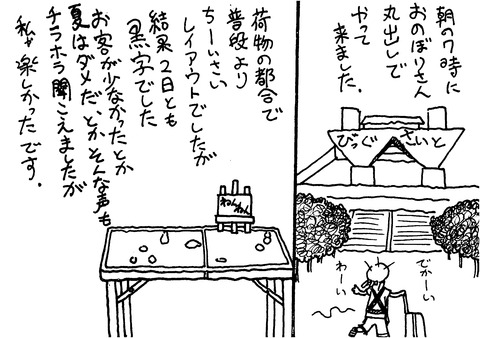 朝の7時に
おのぼりさん
丸出しで
やって
来ました.
びっぐ さいと
でかーい
わーい
荷物の都合で
普段より
ちーいさい
レイアウトでしたが
結果2日とも
黒字でした
お客が少なかったとか
夏はダメだ、とかそんな声も
チラホラ聞こえましたが
私は楽しかったです.
ねんねん